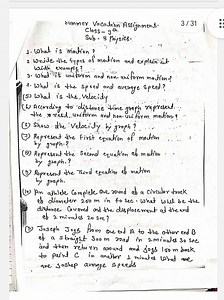 Summer Vacation Assignment
Class - 9th
Sub - Physics
3/31
1. What is motion?
2. Write the types of motion and explain it with example?
3. What is uniform and non uniform motion?
4. What is the speed and average speed?
(5) What is the velocity
(6) According to distance time graph represent the rest, uniform and non uniform motion?
(7) Show the Velocity by graph?
Represent the first equation of motion by graph?
Represent the Second equation of motion by graph?
Represent the Third equation of motion by graph?
An athlete Complete one round of a circular track of diameter 200 m in 40 sec. What will be the distance Covered and the displacement at the end of 2 minutes 20 sec?
Joseph Jogs from one end A to the other end B of a straight 300 m road in 2 minutes 30 sec and then return around and jogs 100 m back to point C in another 1 minute What are Joseph average speeds